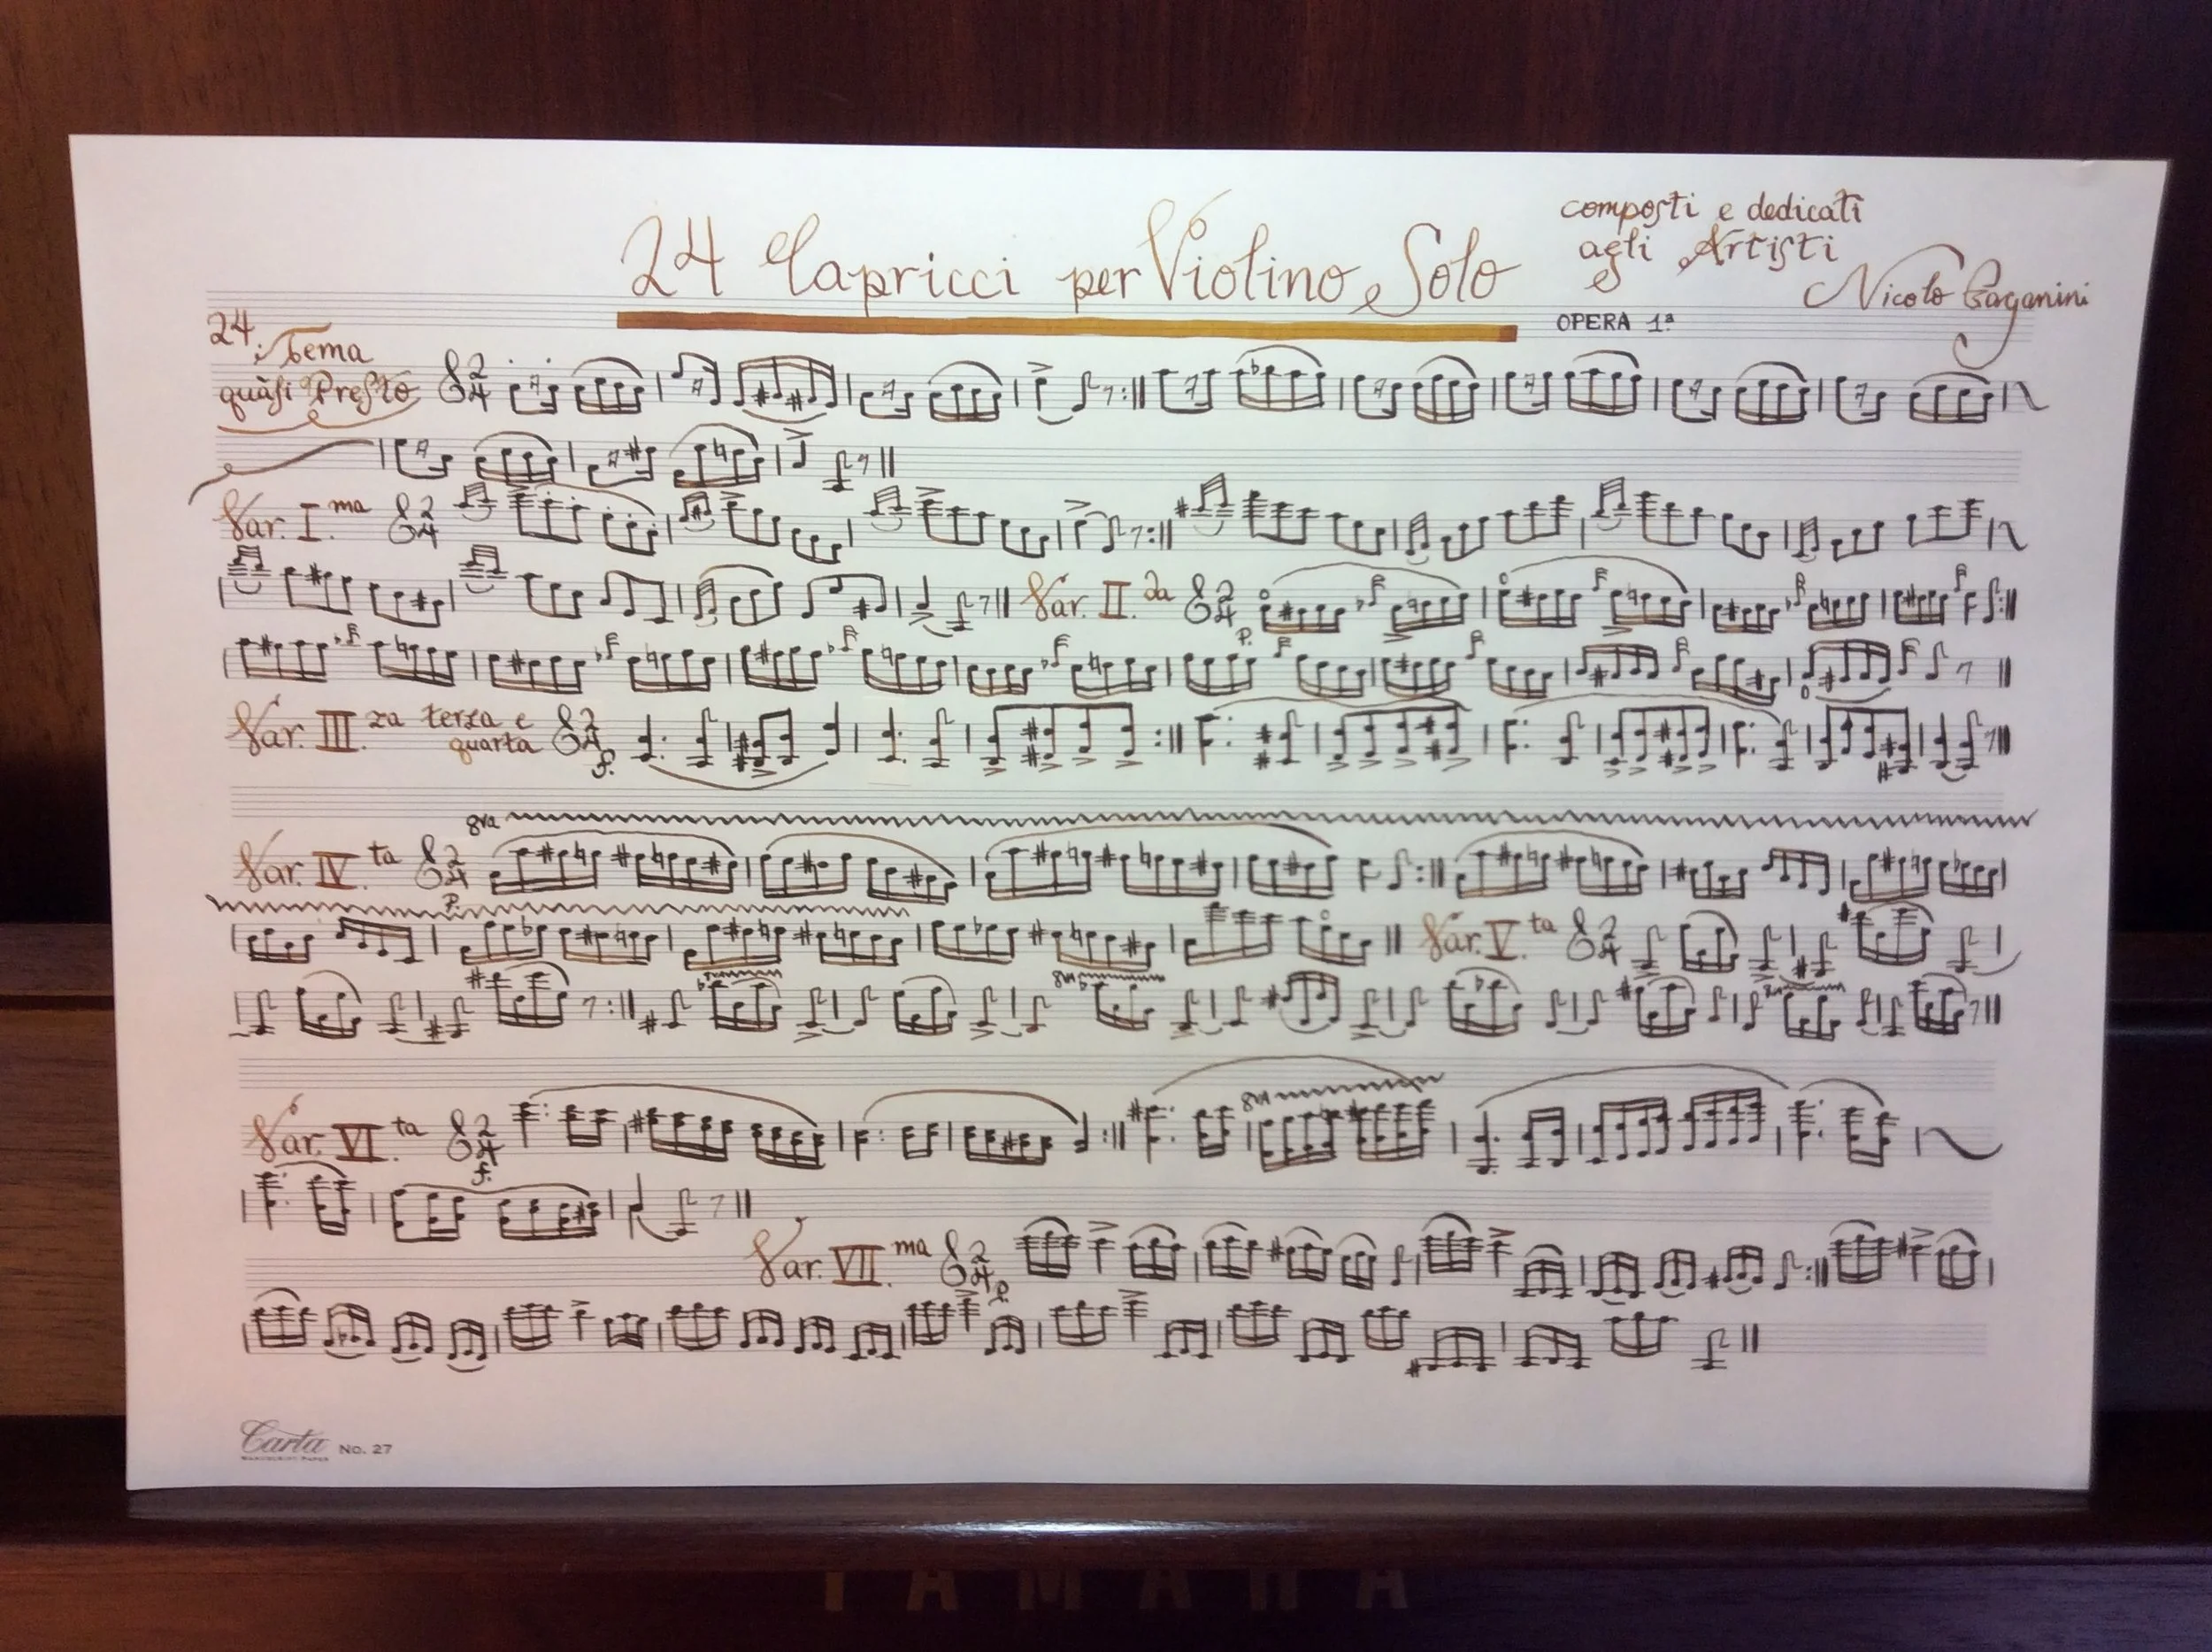 24 Capricci per Violino Solo
composti e dedicati
agli Artisti
Nicolo Paganini
OPERA 1ª
24. Tema
quasi Presto
Var. I.ma
Var. II.da
p.
Var. III.za terza e
quarta
f.
8va
Var. IV.ta
p.
Var. V.ta
8va
8va
Var. VI.ta
f.
8va
Var. VII.ma
p.
Carta No. 27
MANUSCRIPT PAPER
YAMAHA